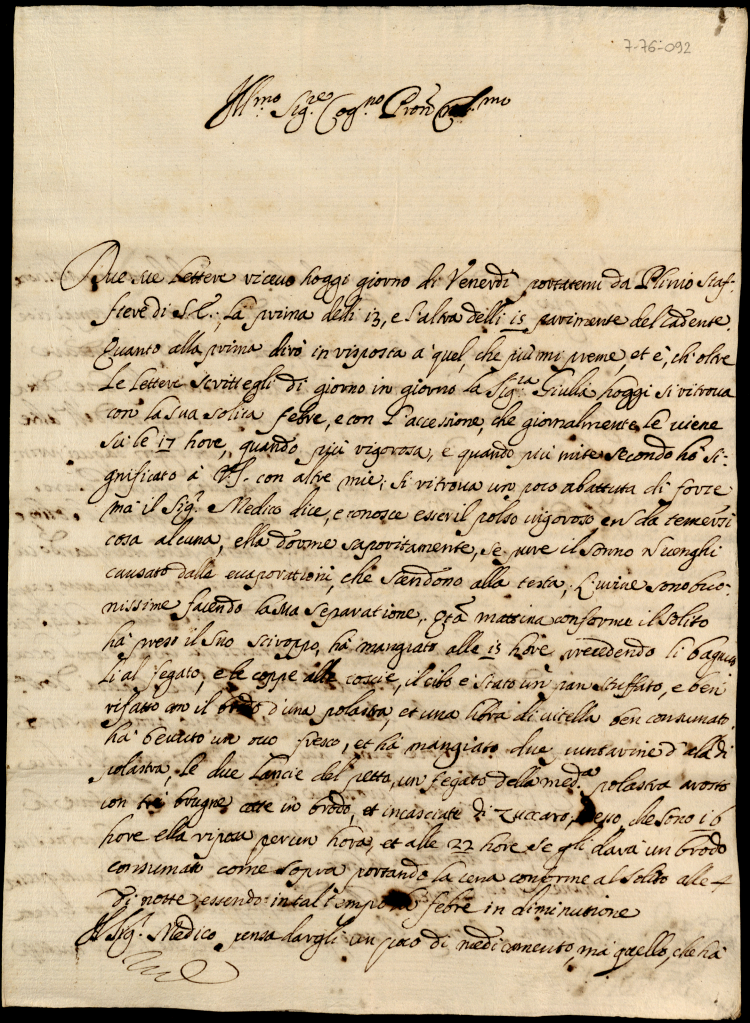 7-76-092
Ill.mo Sig.re Cog.no Pron
Due sue Lettere ricevo hoggi giorno di Venerdì portatemi da Plinio staf-
fiere di S.E.; La prima delli 13, e l'altra delli 15 parimente del cadente.
Quanto alla prima dirò in risposta a quel, che più mi preme, et è, ch'oltre
le Lettere scrittegli di giorno in giorno la Sig.ra Giulia hoggi si ritrova
con la sua solita febre, e con l'accessione, che giornalmente le viene
su le 17 hore, quando più vigorosa, e quando più mite secondo hò si-
gnificato à con altre mie; si ritrova un poco abattuta di forze
mà il Sig.r Medico dice, e conosce esser il polso vigoroso da temersi
cosa alcuna, ella dorme saporitamente, se pure il sonno venghi
causato dalle evaporationi, che scendono alla testa; L'urine sono buo-
nissime facendo la sua separatione, mattina conforme il solito
hà preso il suo sciroppo, hà mangiato alle 15 hore precedendo li bagnuo
li al fegato, e le coppe alle coscie, il cibo è stato un pan stuffato, e ben
rifatto con il brodo d'una polastra, et una libra di vitella ben consumato.
hà bevuto un ovo fresco, et hà mangiato due puntarine d'ala di
polastra, le due Lancie del petto, un fegato della med.a polastra arosto
con tre brugne cotte in brodo, et incasciate di zuccaro; che sono 16
hore ella riposa per un hora, et alle 22 hore se gli darà un brodo
consumato come sopra portando la cena conforme al solito alle 4
di notte essendo in tal tempo febre in diminutione
Il Sig.r Medico pensa dargli un poco di medicamento, mà quello, che hà